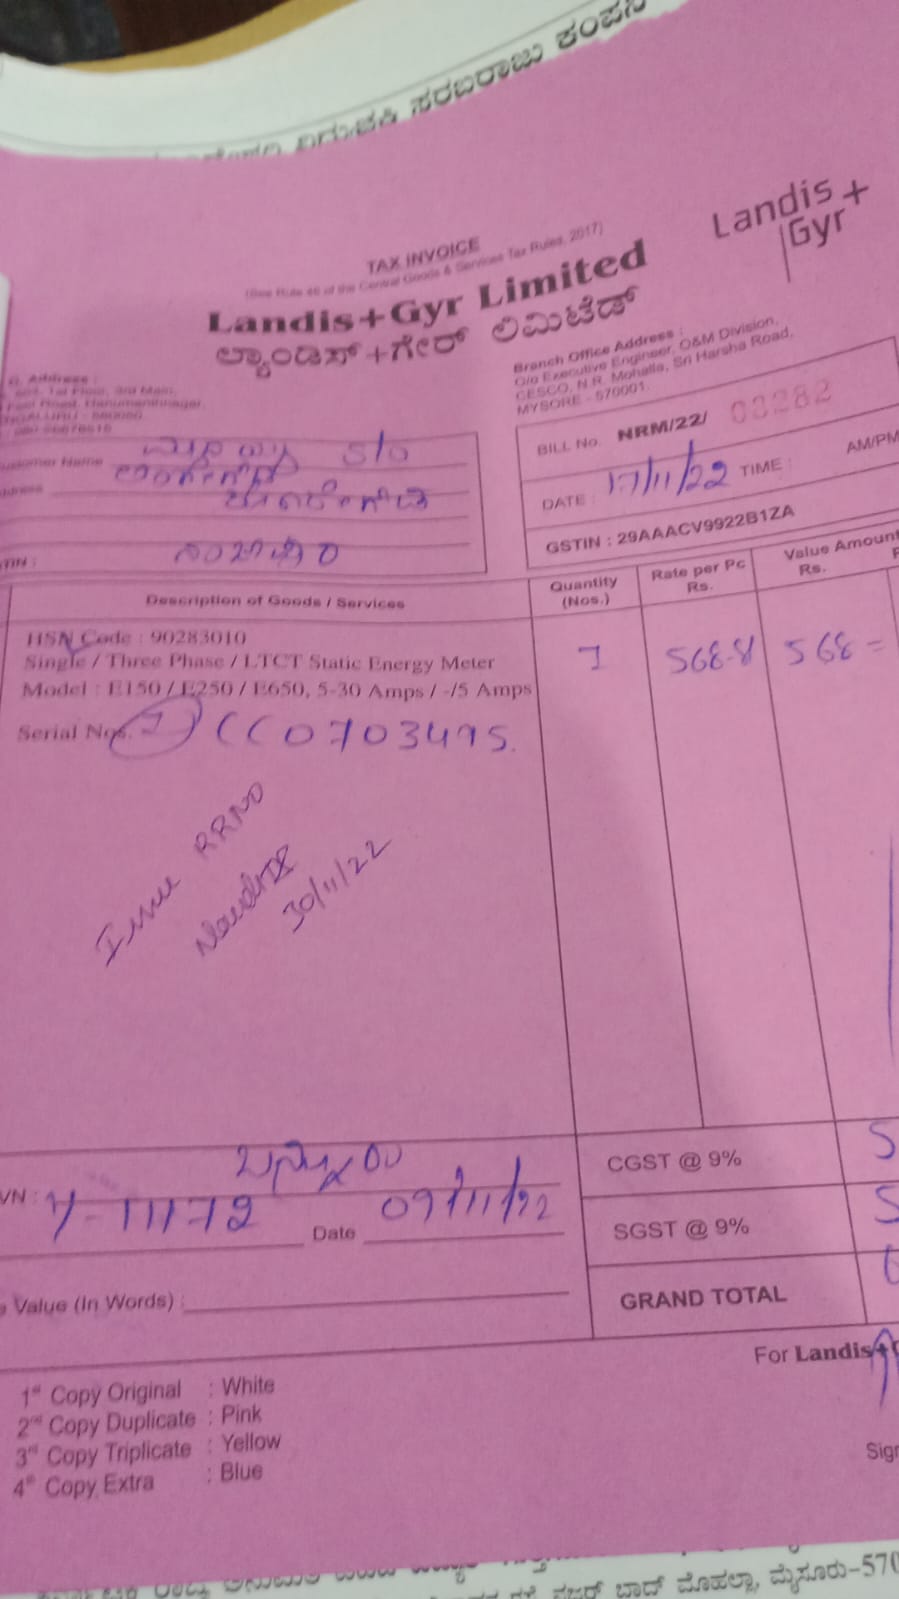 ವಿದ್ಯುಚ್ಛಕ್ತಿ ಸರಬರಾಜು ಕಂಪನಿ
Landis+
Gyr
TAX INVOICE
(See Rule 46 of the Central Goods & Services Tax Rules, 2017)
Landis+Gyr Limited
ಲ್ಯಾಂಡಿಸ್+ಗೇರ್ ಲಿಮಿಟೆಡ್
Address :
Branch Office Address :
O/o Executive Engineer, O&M Division,
CESCO, N.R. Mohalla, Sri Harsha Road,
MYSORE - 570001.
Name S/o
BILL No. NRM/22/ 03282
DATE : 17/11/22 TIME : AM/PM
GSTIN : 29AAACV9922B1ZA
Description of Goods / Services
Quantity
(Nos.)
Rate per Pc
Rs.
Value Amount
Rs.
HSN Code : 90283010
Single / Three Phase / LTCT Static Energy Meter
Model : E150 / E250 / E650, 5-30 Amps / -/5 Amps
1 568-8 568=
Serial Nos. 0703495.
Issue RRNO
30/11/22
CGST @ 9%
Y-11172 Date 09/11/22
SGST @ 9%
Value (In Words) :
GRAND TOTAL
For Landis+
1st Copy Original : White
2nd Copy Duplicate : Pink
3rd Copy Triplicate : Yellow
4th Copy Extra : Blue
ಮೊಹಲ್ಲಾ, ಮೈಸೂರು-570